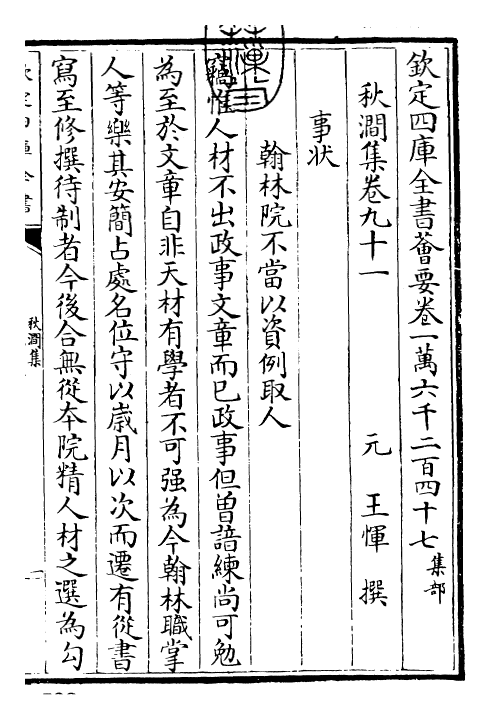 欽定四庫全書薈要卷一萬六千二百四十七 集部
秋澗集卷九十一 元 王惲 撰
事狀
翰林院不當以資例取人
竊惟人材不出政事文章而已政事但曽諳練尚可勉
為至於文章自非天材有學者不可强為今翰林職掌
人等樂其安簡占處名位守以歳月以次而遷有從書
寫至修撰待制者今後合無從本院精人材之選為勾
欽定四庫全書
秋澗集